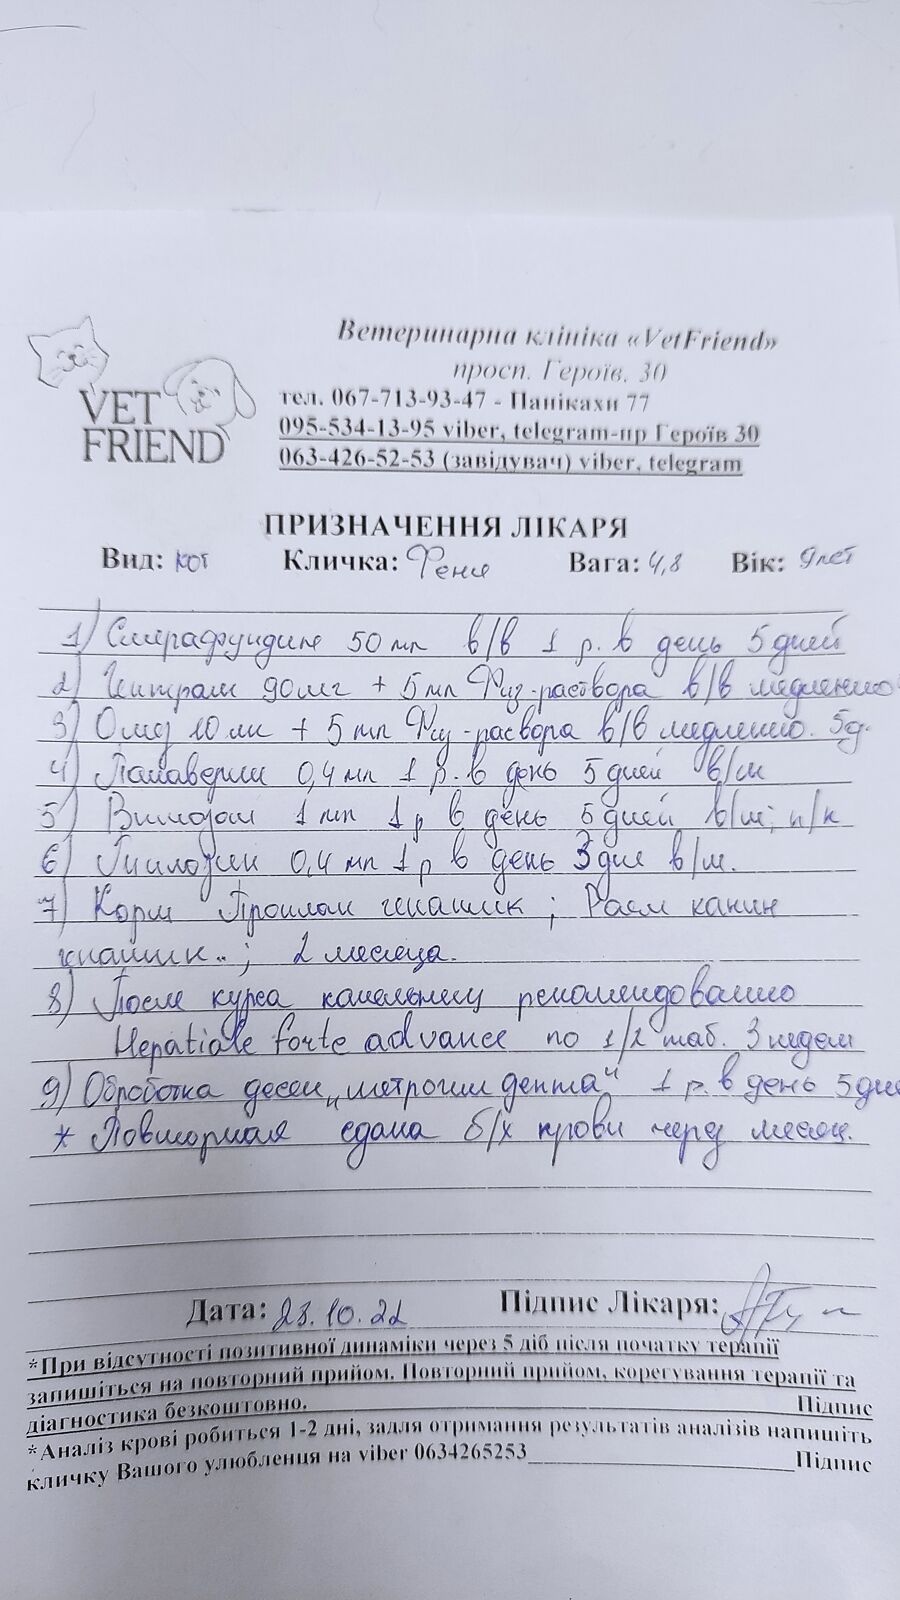 VET
FRIEND
Ветеринарна клініка «VetFriend»
просп. Героїв, 30
тел. 067-713-93-47 - Панікахи 77
095-534-13-95 viber, telegram-пр Героїв 30
063-426-52-53 (завідувач) viber, telegram
ПРИЗНАЧЕННЯ ЛІКАРЯ
Вид: кот Кличка: Феня Вага: 4,8 Вік: 9 лет
1) 50 мл в/в 1 р. в день 5 дней
2) 90 мг + 5 мл Физ-раствора в/в медленно
3) Омез 10 мг + 5 мл Физ-раствора в/в медленно. 5д.
4) Папаверин 0,4 мл 1 р. в день 5 дней в/м
5) 1 мл 1 р в день 5 дней в/м; п/к
6) Тилозин 0,4 мл 1 р в день 3 дня в/м.
7) Корм Проплан гепатик ; Роял канин
гепатик..; 2 месяца.
8) После курса капельниц рекомендовано
Hepatiale forte advance по 1/2 таб. 3 недели
9) Обработка десен „метрогил дента" 1 р. в день 5 дне
* Повторная сдача б/х крови через месяц.
Дата: 23.10.22 Підпис Лікаря:
*При відсутності позитивної динаміки через 5 діб після початку терапії
запишіться на повторний прийом. Повторний прийом, корегування терапії та
діагностика безкоштовно. Підпис
*Аналіз крові робиться 1-2 дні, задля отримання результатів аналізів напишіть
кличку Вашого улюбленця на viber 0634265253 Підпис